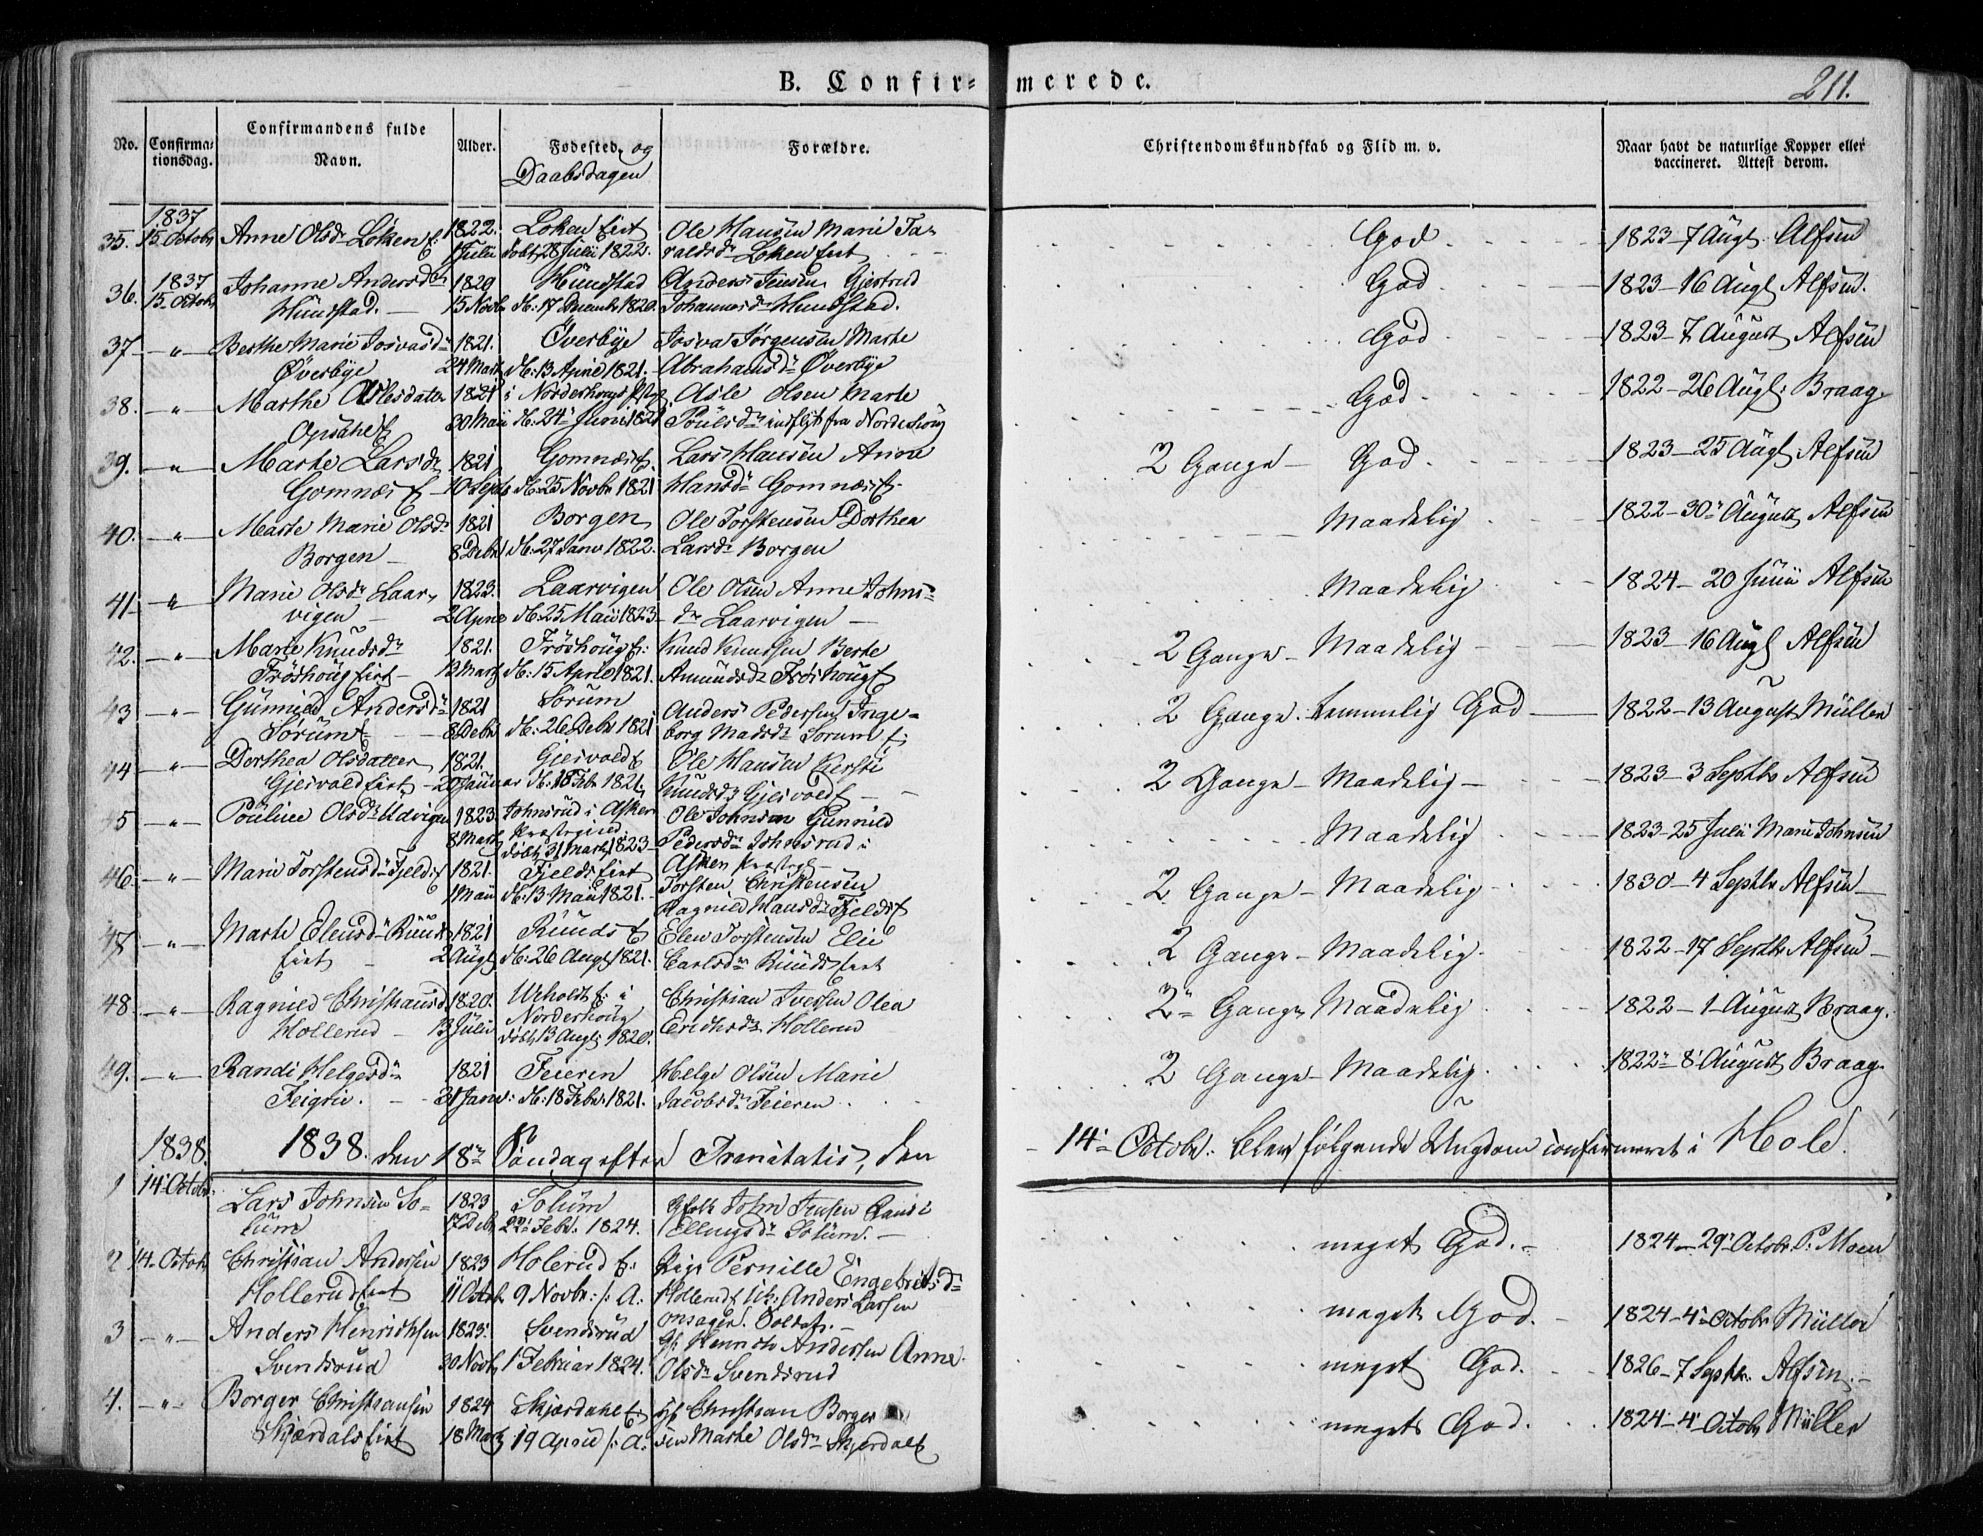 B. Confir= merede. 211.
No. Confirma= tionsdag. Confirmandens fulde Navn. Alder. Fødested og Daabsdagen Forældre. Christendomskundskab og Flid m. v. Naar havt de naturlige Kopper eller vaccineret. Attest derom.
35. 1837 15 Octobr Anne Olsdr Løken E: 1822. 1 Julii Løken Eiet døbt 28 Julii 1822. Ole Hansen Marie Ta= raldsdr Løken Eiet God 1823 – 7 Augt. Alfsen
36. 1837 15 Octobr Johanne Andersdr Hundstad. 1820 15 Novbr Hundstad d: 17 Decembr 1820. Anders Jensen Gjertrud Johannesdr Hundstad. God 1823 – 16 Augt Alfsen.
37 – " – Berthe Marie Josvasdr Øverbye 1821. 24 Marts Øverbye d: 13 April 1821. Josva Jørgensen Marte Abrahamsdr Øverbye God 1823 – 7 August Alfsen
38. – " – Marthe Aslesdatter Opsahl E 1821 30 Maii i Norderhougs d: 24 Juni 1821 Asle Olsen Marte Poulsdr indflyt fra Norderhoug God 1822 – 26 Augt: Braag
39. – " – Marte Larsdr Gomnæs E 1821 10 Septr Gomnæs E. d: 25 Novbr 1821 Lars Hansen Anne Hansdr Gomnæs E. 2 Gange – God. 1823 – 25 Augt Alfsen
40. – " – Marte Marie Olsdr Borgen – 1821 8 Debr Borgen d: 27 Janv 1822. Ole Torstensen Dorthea Larsdr Borgen Maadelig 1822 – 30 August Alfsen
41 – " – Marie Olsdr Laar= vigen – 1823. 2 April Laarvigen d: 25 Maii 1823 Ole Olsen Anne Johns= dr Laarvigen – Maadelig 1824 – 20 Junii Alfsen
42. – " – Marte Knudsdr Frøshoug Eiet – 1821. 13 Marts Frøshoug E: d: 15 April 1821. Knud Knudsen Berte Amundsdr Frøshoug E 2 Gange – Maadelig 1823 – 16 Augt Alfsen
43 – " – Gunnild Andersdr Sørum E 1821 8 Debr Sørum d: 26 Debr 1821 Anders Pedersen Inge= borg Madsdr Sørum E; 2 Gange. temmelig God 1822 – 13 August Müller
44 – " – Dorthea Olsdatter Gjesvold Eiet – 1821. 2 Januar Gjesvold E d: 18 Feb 1821. Ole Hansen Kirsti Knudsdr Gjesvold E – 2 Gange – Maadelig – 1823 – 3 Septbr Alfsen
45 – " – Pouline Olsdr Udvigen 1823. 8 Marts Johnsrud i Asker Præstegield døbt 31 Marts 1823 Ole Johnsen Gunnild Pedersdr Johnsrud i Asker Præstegl – Maadelig 1823 – 25 Julii Marie Johnsen
46. – " – Marie Torstensdr Fjelds E 1821. 1 Maii Fjelds Eiet d: 13 Maii 1821. Torsten Christensen Ragnild Hansdr Fjelds E 2 Gange – Maadelig 1830 – 4 Septbr Alfsen –
47 – " – Marte Elensdr Ruuds Eiet 1821 2 Augt Ruuds E d: 26 Augt 1821. Elen Torstensen Elie Carlsdr Ruuds Eiet 2 Gange – Maadelig. 1822 – 17 Septbr Alfsen –
48 – " – Ragnild Christiansd. Hollerud – 1820. 13 Julii Ueholdt E: i Norderhoug døbt 13 Augt: 1820. Christian Iversen Olea Erichsdr Hollerud 2 Gange Maadelig 1822 – 1 August Braag.
49. – " – Randi Helgesdr Feigrie. 1821 31 Janv: Feieren d: 18 Febr: 1821. Helge Olsen Marie Jacobsdr Feieren 2 Gange – Maadelig. 1822 – 8 August Braag.
1838. 1838. den 18de Søndag efter Trenitatis, den 14de Octobr. blev følgende Ungdom confirmeret i Hole.
1 14 Octobr. Lars Johnsen So= lum 1823 17 Debr Solum 22 Febr. 1824. Gftr John Jensen Randi Ellingsdr Solum. – meget God. – 1824 – 29 Octobr P. Moen
2 14 Octobr Christian Andersen Hollerud Eiet 1823 11 Octobr Holerud E: 9 Novbr: /: A: Pige Pernille Engebretsdr Hollerud E Anders Larsen Onsager. Soldat. – meget God. 1824 – 4 Octobr Müller
3 – " – Anders Henrichsen Svendsrud 1823. 30 Novbr Svendsrud 1 Februar 1824. Gf: Henrich Andersen Anne Olsdr Svendsrud meget God. 1826 – 7 Septbr. Alfsen. –
4. – " – Borger Christiansen Skjærdals Eiet 1824 18 Marts Skjærdahl E 19 April /: A: Gf Christian Borger sen Marte Olsdr Skjerdal E meget God. 1824 – 4 Octobr Müller